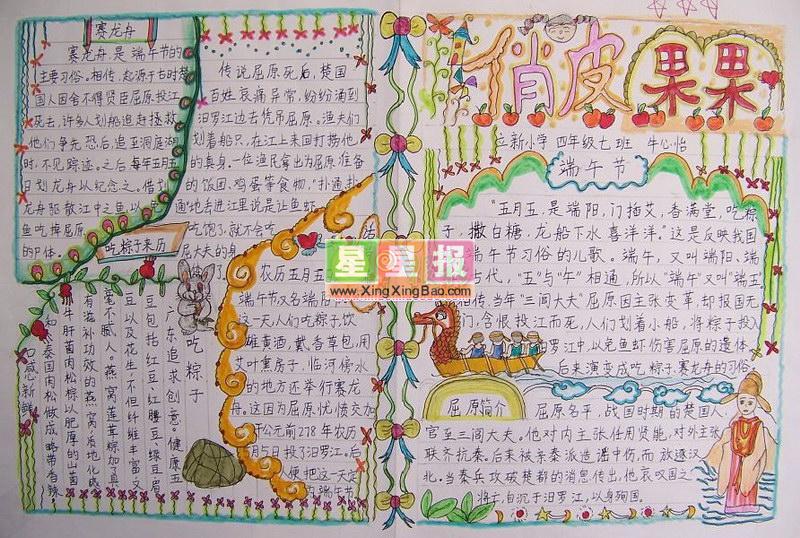 赛龙舟
赛龙舟,是端午节的
主要习俗。相传,起源于古时楚
国人因舍不得贤臣屈原投江
死去,许多人划船追赶拯救
他们争先恐后,追至洞庭湖
时,不见踪迹。之后每年五月五
日划龙舟以纪念之。借划
龙舟驱散江中之鱼,以
鱼吃掉屈原
的尸体。
传说屈原死后,楚国
百姓哀痛异常,纷纷涌到
汨罗江边去凭吊屈原。渔夫们
划着船只,在江上来回打捞他
的真身。一位渔民拿出为屈原准备
的饭团、鸡蛋等食物,“扑通、扑
通”地丢进江里,说是让鱼虾
吃饱了,就不会咬
屈大夫的身
吃粽子来历
农历五月五
端午节,又名端阳
这一天,人们吃粽子,饮
雄黄酒,戴香草包,用
艾叶熏房子,临河傍水
的地方还举行赛龙
舟。这因为屈原忧愤交加
于公元前278年农历
5月5日投了汨罗江。后
便把这一天定
端午节
吃粽子
广东追求创意。健康五
豆包括红豆、红腰豆、绿豆、眉
豆以及花生,不但纤维丰富,又
毫不腻人。燕窝莲蓉粽加了具
有滋补功效的燕窝,质地化成
牛肝菌肉松粽以肥厚的山菌
和泰国肉松做成,略带自辣
口感新鲜
俏皮果果
立新小学 四年级七班 牛心怡
端午节
“五月五,是端阳,门插艾,香满堂,吃粽
子,撒白糖,龙船下水喜洋洋。”这是反映我国
端午节习俗的儿歌。端午,又叫端阳、端
古代,“五”与“午”相通,所以“端午”又叫“端五
相传,当年“三闾大夫”屈原因主张变革,却报国无
门,含恨投江而死,人们划着小船,将粽子投入
罗江中,以免鱼虾伤害屈原的遗体,
后来演变成吃粽子、赛龙舟的习俗。
屈原简介
屈原名平,战国时期的楚国人,
官至三闾大夫。他对内主张任用贤能,对外主张
联齐抗秦。后来被亲秦派造谣中伤,而放逐汉
北。当秦兵攻破楚都的消息传出,他哀叹国之
将亡,自沉于汨罗江,以身殉国。
星星报
www.XingXingBao.com